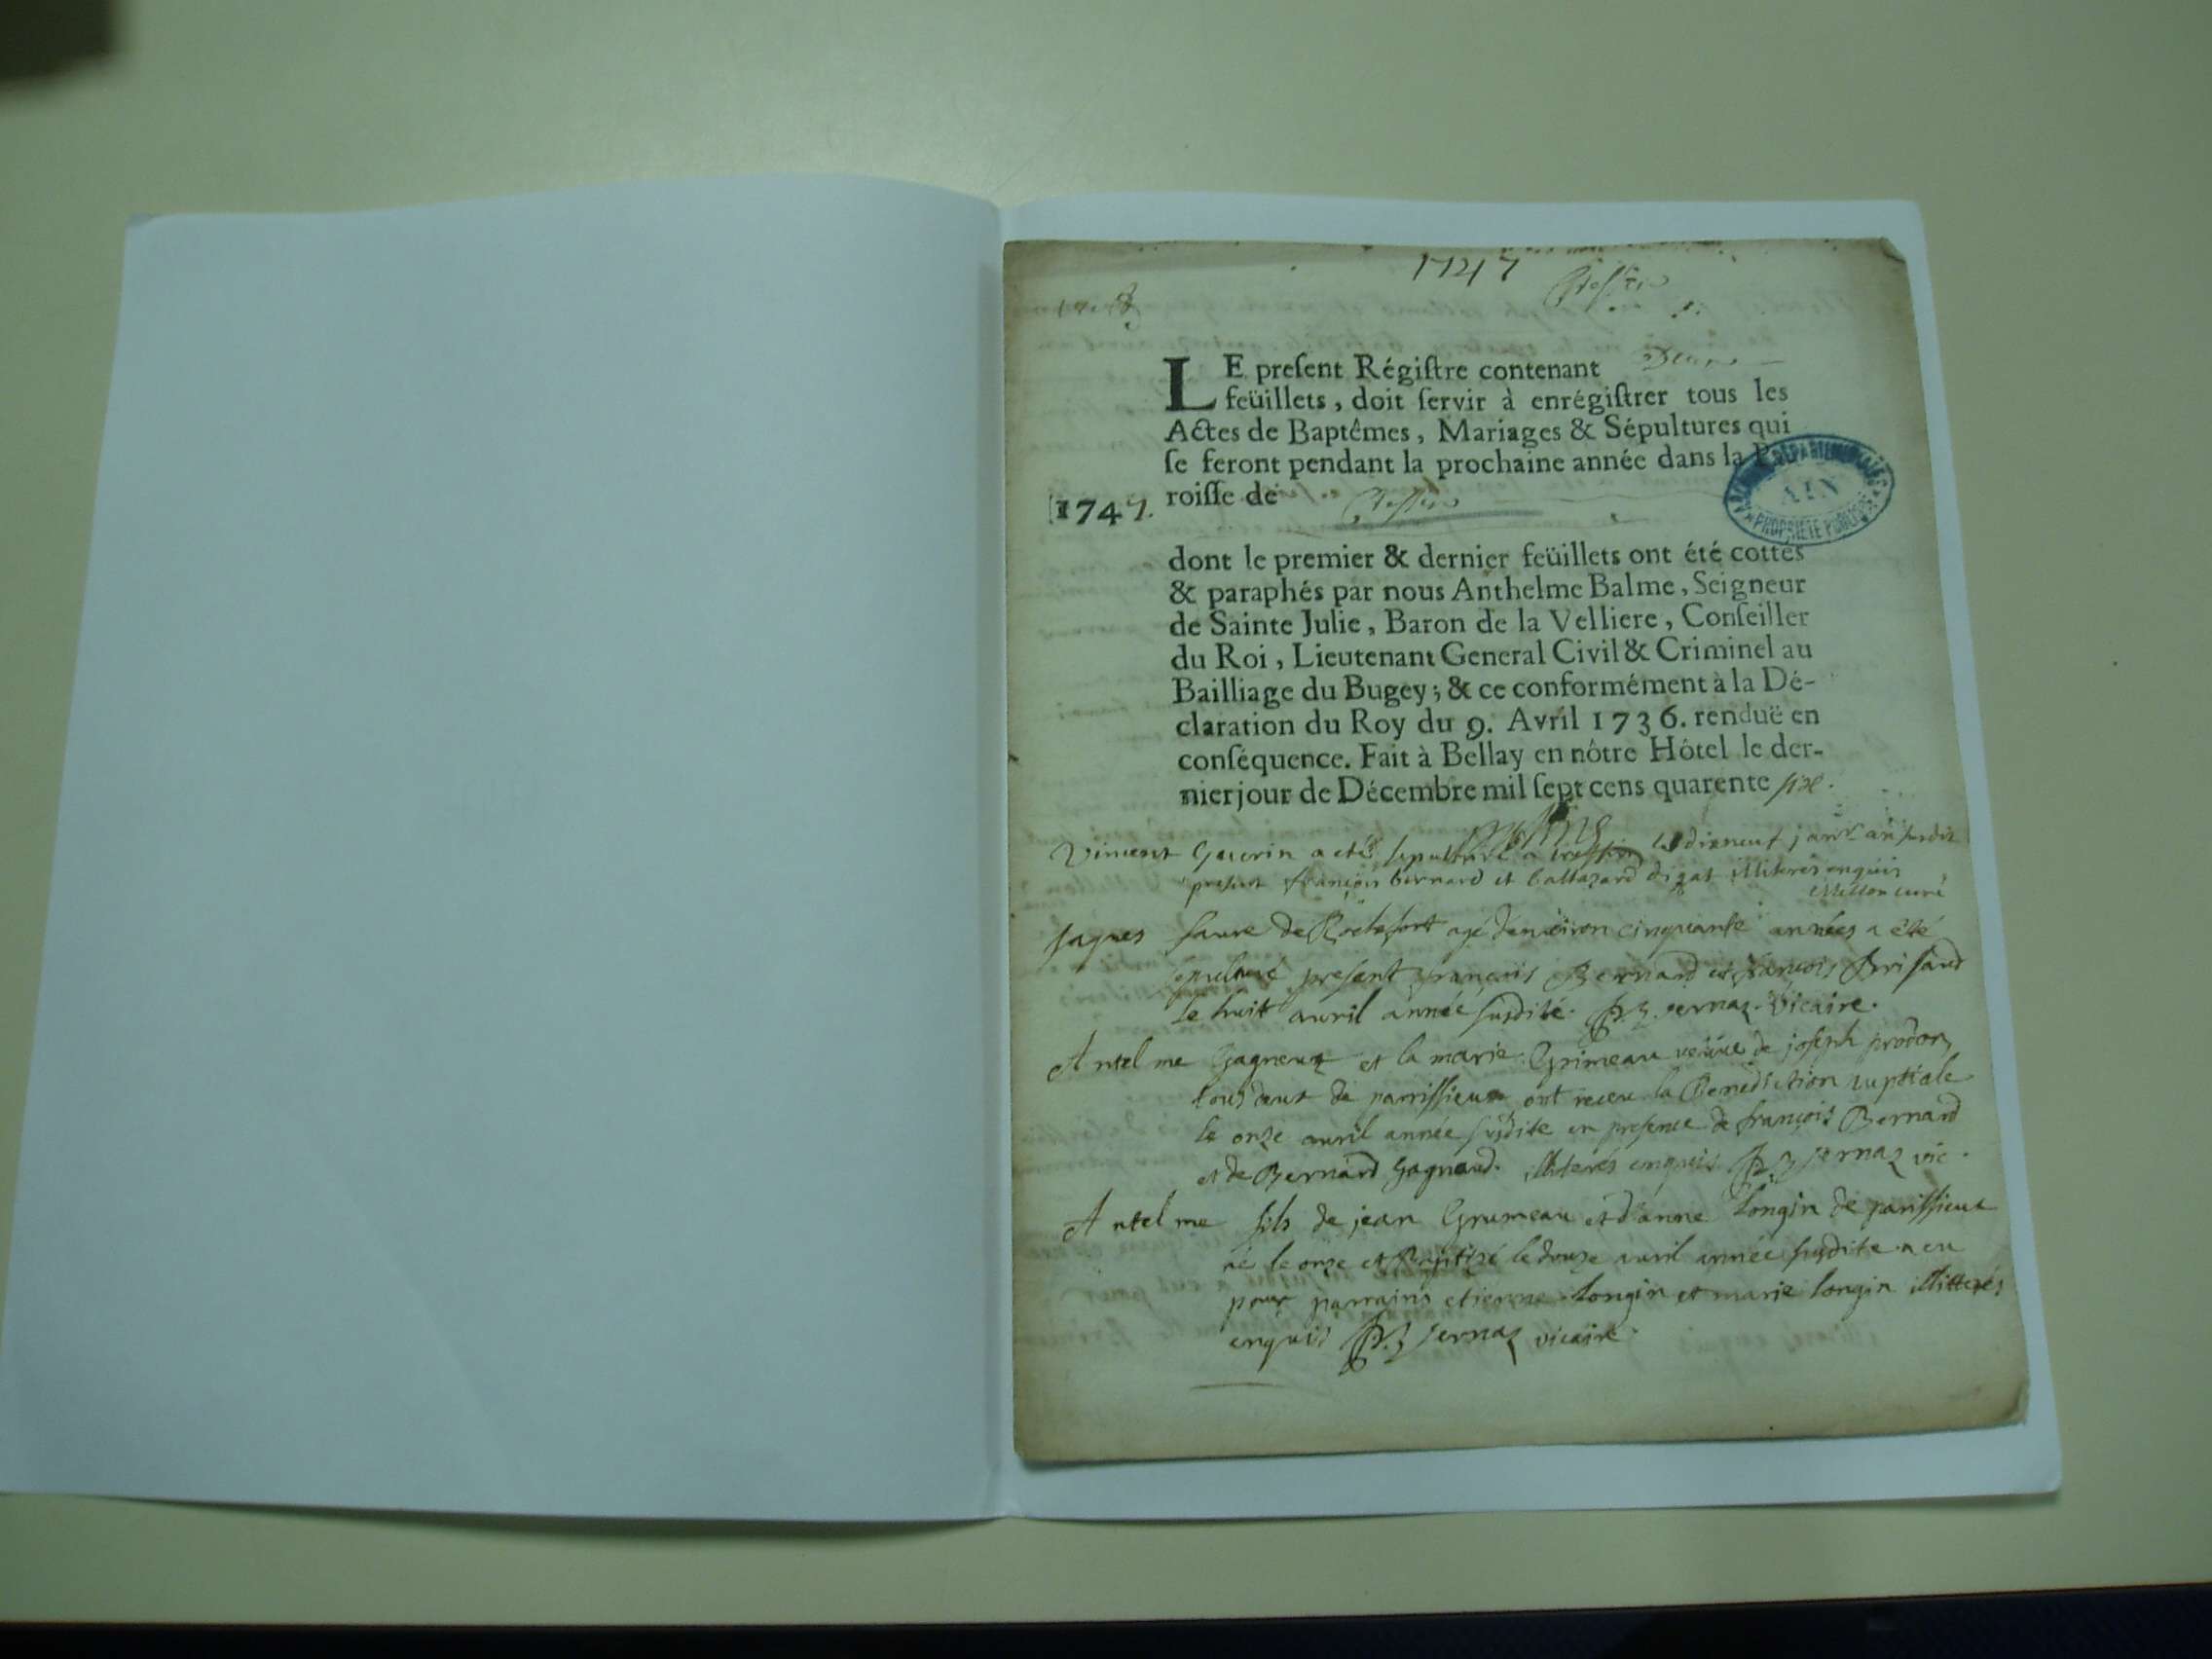 1747
LE preſent Régiſtre contenant Deux
feüillets, doit ſervir à enrégiſtrer tous les
Actes de Baptêmes, Mariages & Sépultures qui
ſe feront pendant la prochaine année dans la Pa-
1747. roiſſe de
ARCHIVES DÉPARTEMENTALES
AIN
PROPRIÉTÉ PUBLIQUE
dont le premier & dernier feüillets ont été cottés
& paraphés par nous Anthelme Balme, Seigneur
de Sainte Julie, Baron de la Velliere, Conſeiller
du Roi, Lieutenant General Civil & Criminel au
Bailliage du Bugey; & ce conformément à la Dé-
claration du Roy du 9. Avril 1736. renduë en
conſéquence. Fait à Bellay en nôtre Hôtel le der-
nier jour de Décembre mil ſept cens quarente six.
Vincent Guerin a eté sepulturé a le dixneuf janvr an susdit
present françois bernard et baltazard digat illiterés enquis
Millon curé
Jaques faure de Rochefort agé denviron cinquante années a été
sepulturé present françois Bernard et françois Brisaud
le huit avril année susdite. vernaz. vicaire.
Antelme Gagneux et la marie Grimeau veüve de joseph prodon
tous deux de parrissieux ont receu la Benediction nuptiale
le onze avril année susdite en presence de françois Bernard
et de Bernard Gagnaud. illiterés enquis vernaz vic.
Antelme fils de jean Grumeau et d'anne longin de parissieux
né le onze et Baptizé le douze avril année susdite a eu
pour parrains etienne longin et marie longin illitterés
enquis vernaz vicaire.